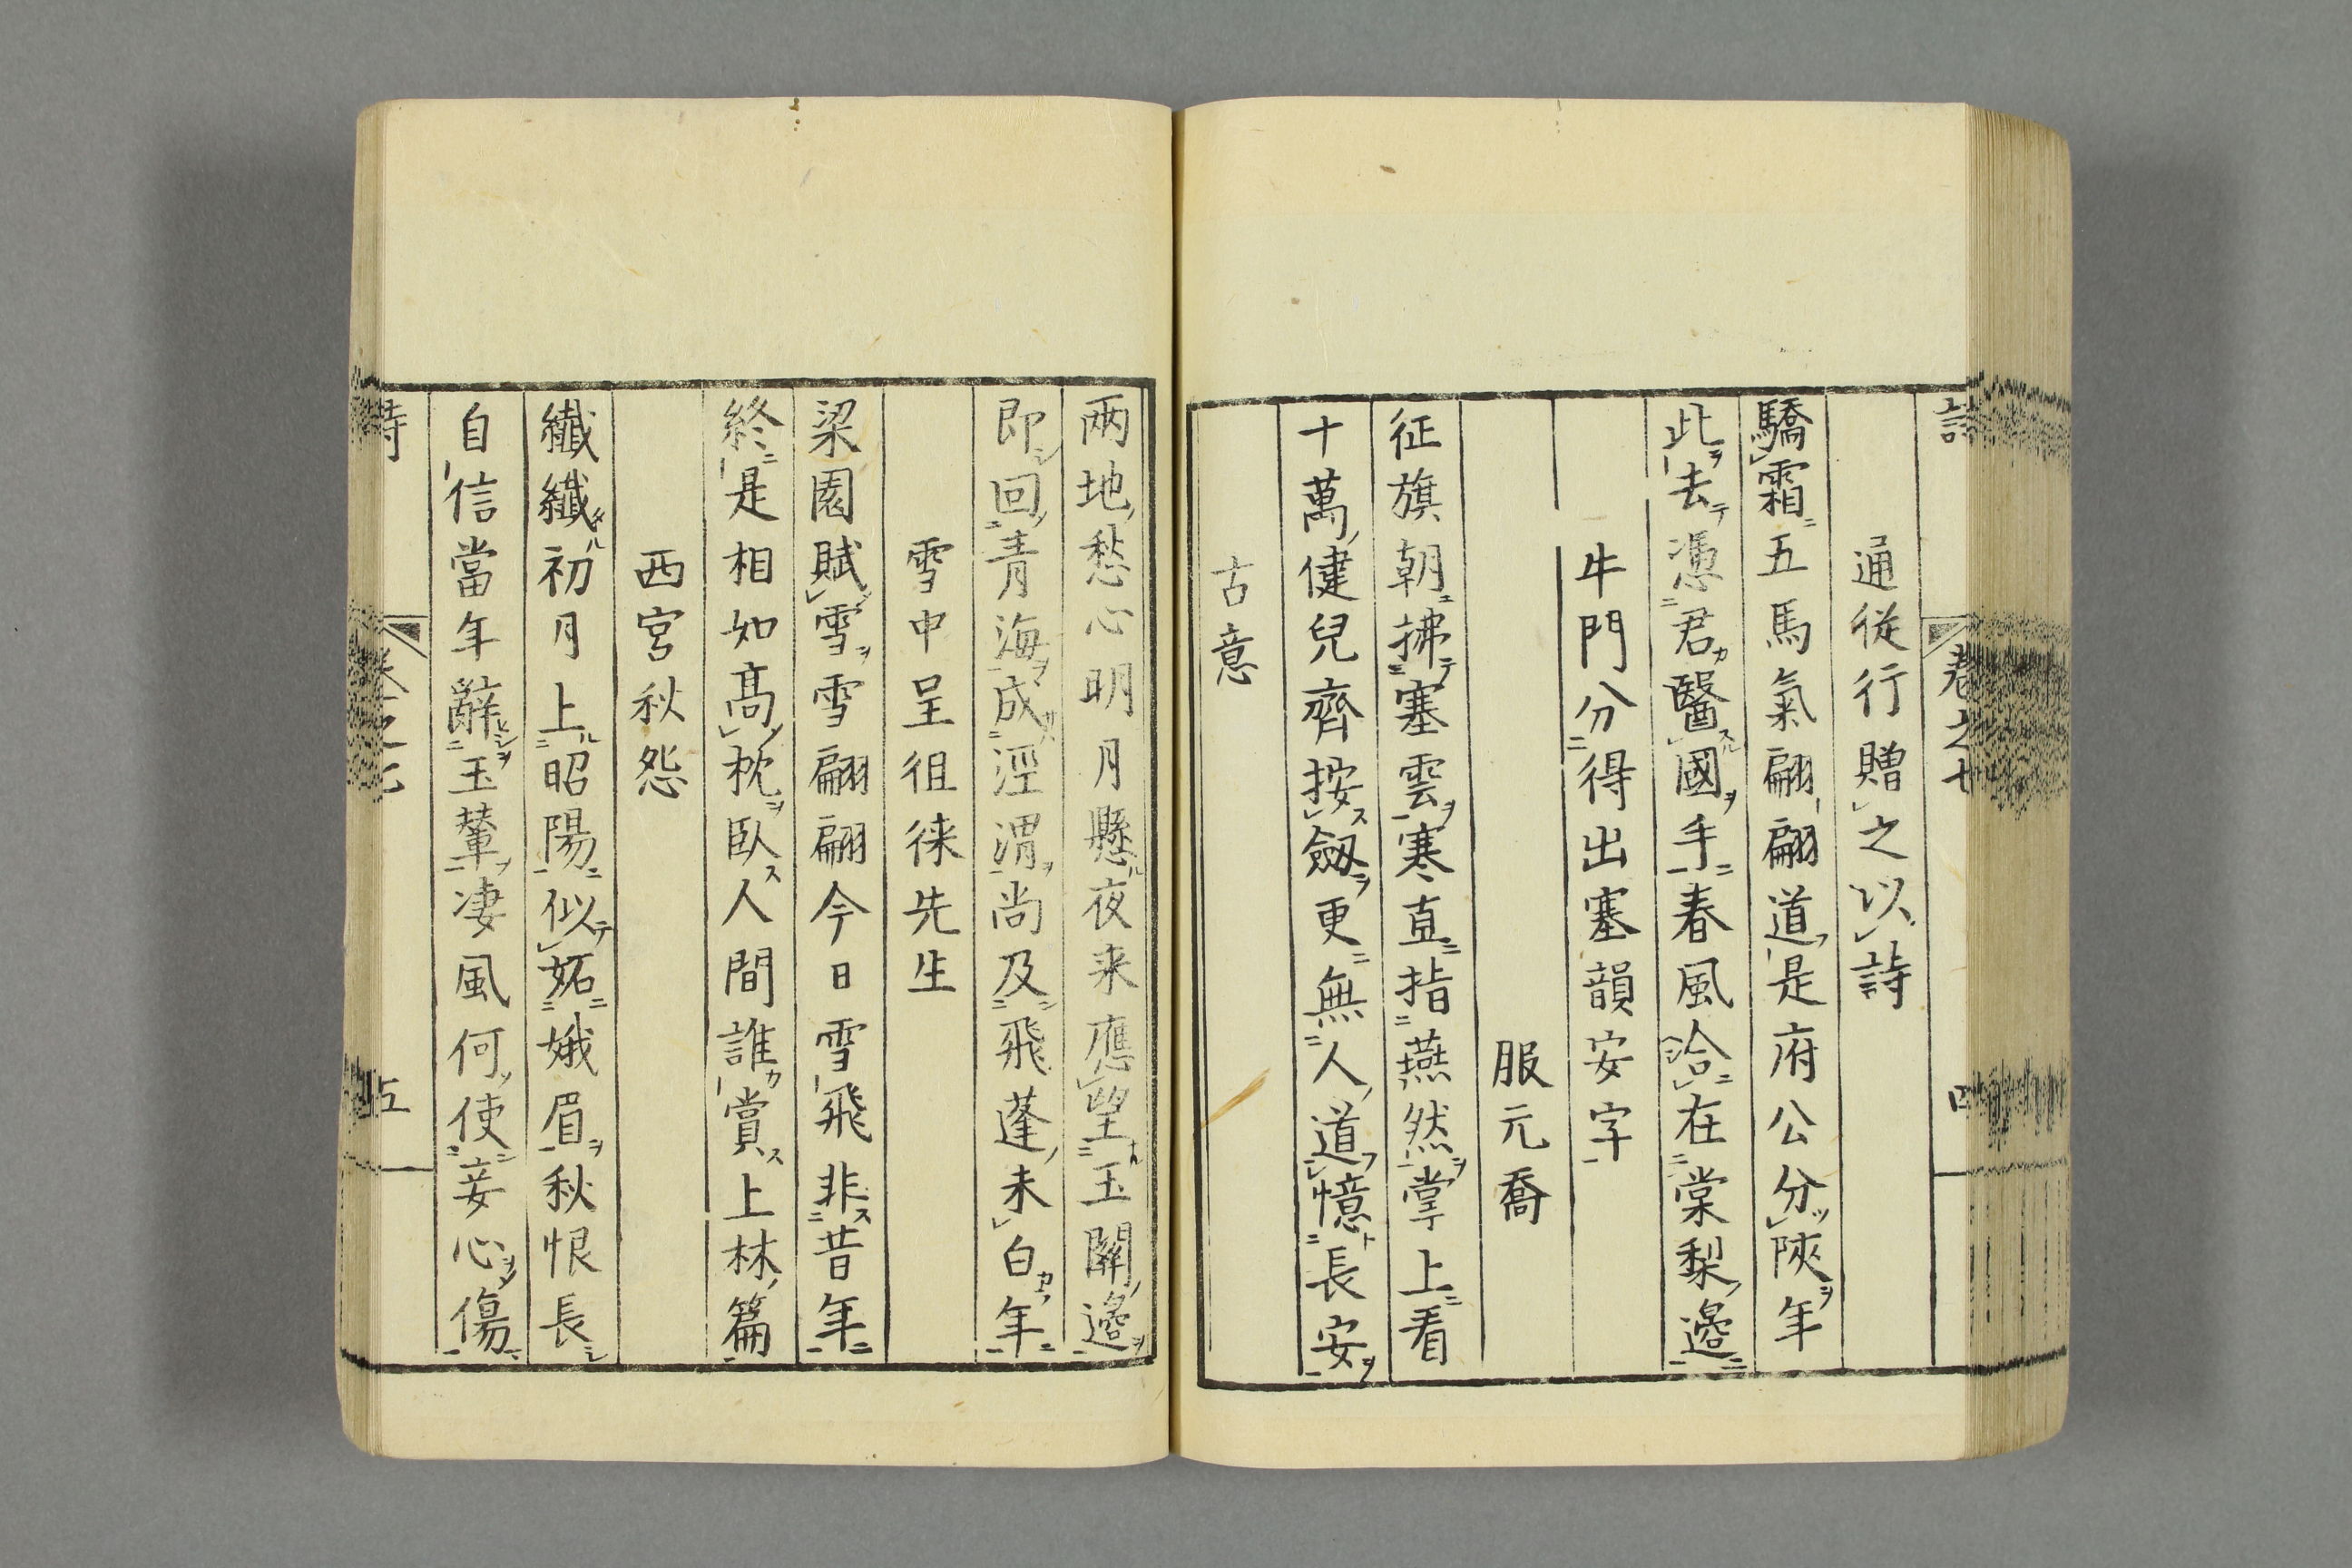 通從行贈之以詩
驕霜五馬氣翩翩道是府公分陝年
此去憑君醫國手春風洽在棠梨邉
牛門分得出塞韻安字
服元喬
征旗朝拂塞雲寒直指燕然掌上看
十萬健兒齊按劔更無人道憶長安
古意
兩地愁心明月懸夜来應望玉關邉
即回青海成涇渭尚及飛蓬未白年
雪中呈徂徠先生
梁園賦雪雪翩翩今日雪飛非昔年
終是相如髙枕臥人間誰賞上林篇
西宮秋怨
纖纖初月上昭陽似妬娥眉秋恨長
自信當年辭玉輦凄風何使妾心傷